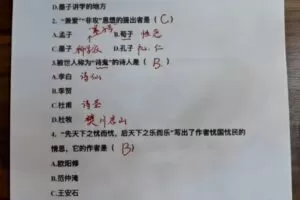 D.墨子讲学的地方
2.“兼爱”“非攻”思想的提出者是（ C ）
A.孟子 B.荀子 性恶
C.墨子 D.孔子 仁
3.被世人称为“诗鬼”的诗人是（ B ）
A.李白 诗仙
B.李贺
C.杜甫 诗圣
D.杜牧 樊川居士
4.“先天下之忧而忧，后天下之乐而乐”写出了作者忧国忧民的
情怀，它的作者是（ B ）
A.欧阳修
B.范仲淹
C.王安石